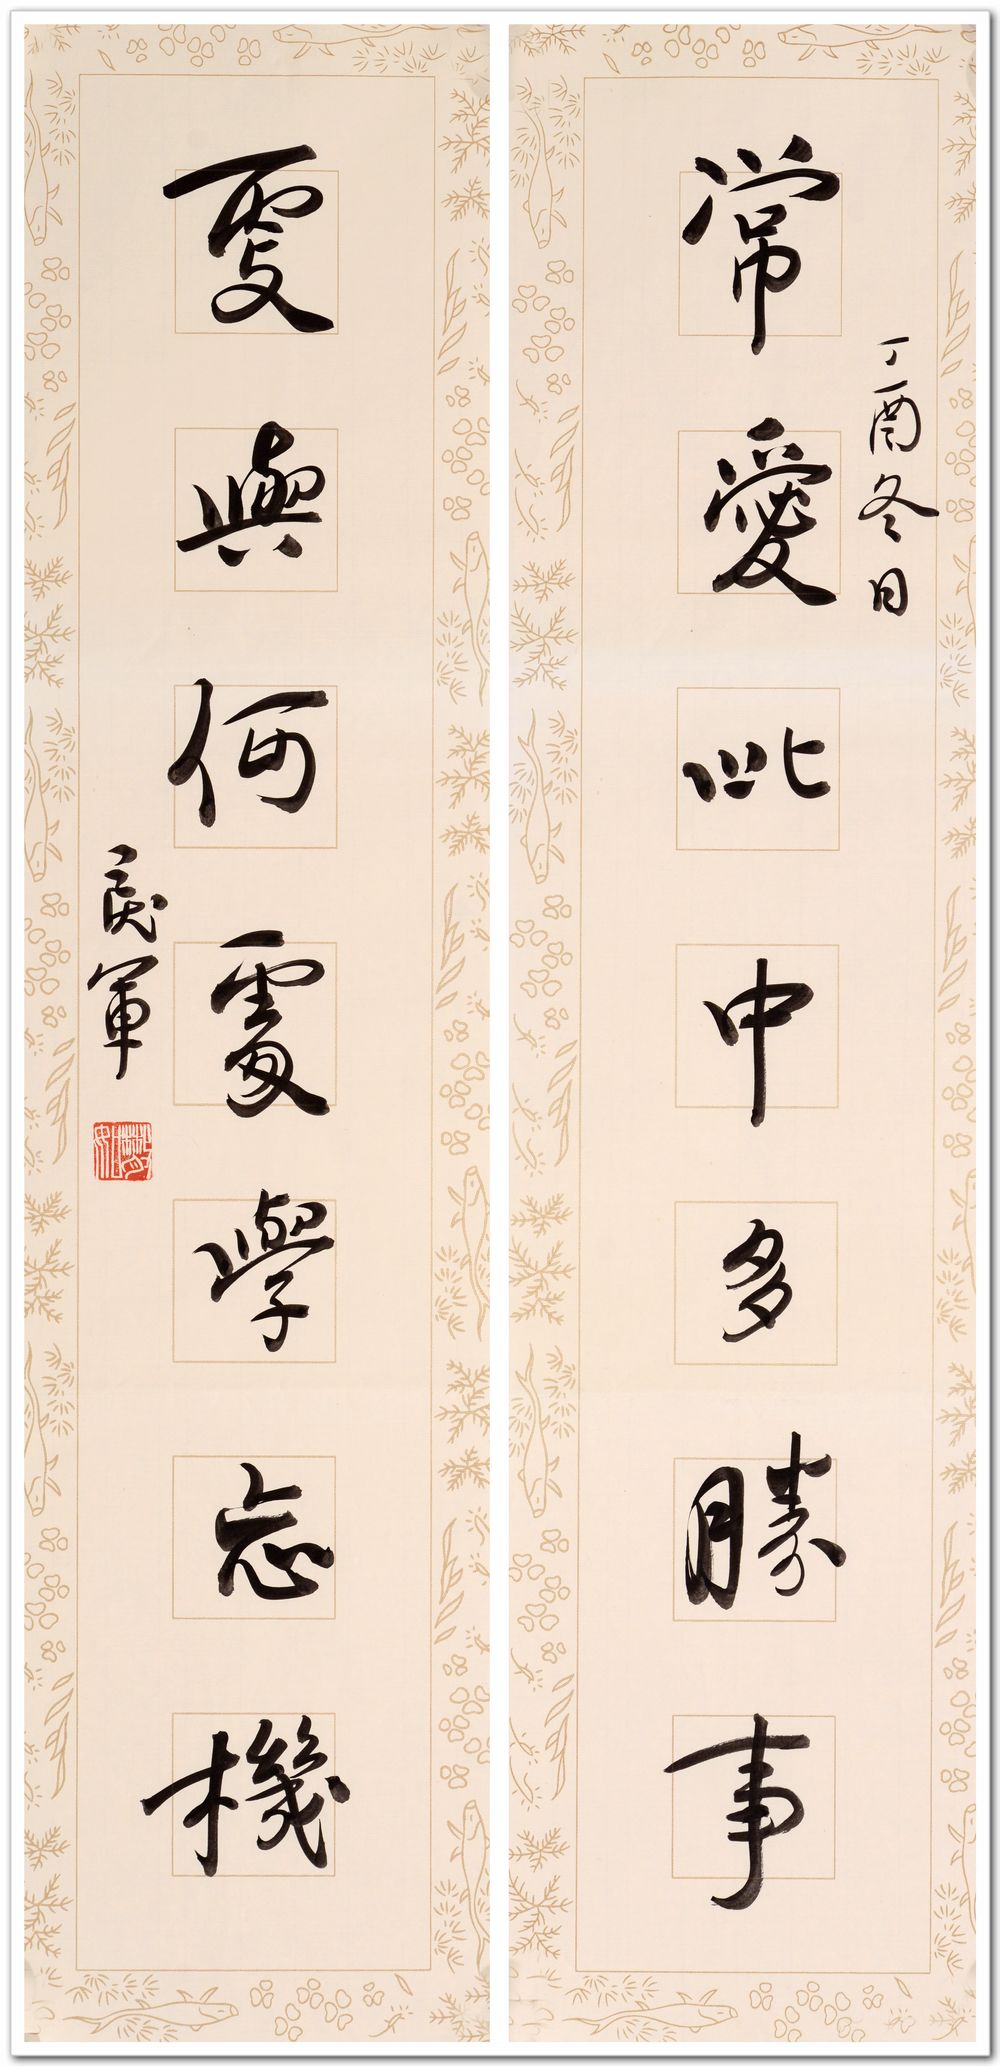 丁酉冬日
常愛此中多勝事
更與何處學忘機